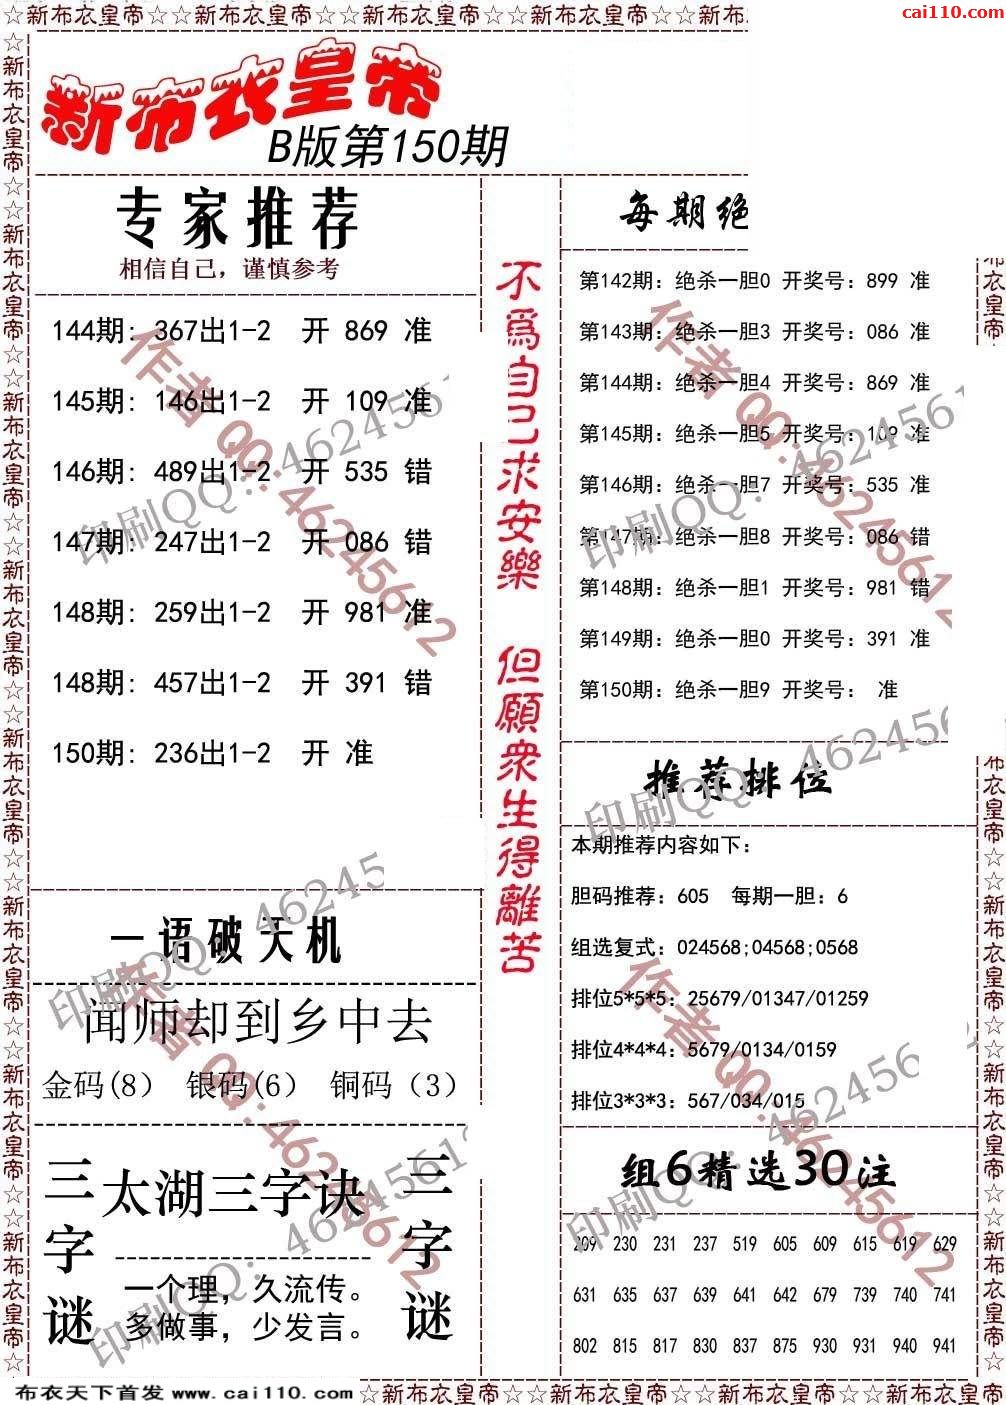 ☆新布衣皇帝☆☆新布衣皇帝☆☆新布衣皇帝☆☆新布衣皇帝☆☆新布
cai110.com
新布衣皇帝
B版第150期
专家推荐
相信自己，谨慎参考
144期: 367出1-2 开 869 准
145期: 146出1-2 开 109 准
146期: 489出1-2 开 535 错
147期: 247出1-2 开 086 错
148期: 259出1-2 开 981 准
148期: 457出1-2 开 391 错
150期: 236出1-2 开 准
一语破天机
闻师却到乡中去
金码(8） 银码(6） 铜码（3）
三字谜
太湖三字诀
一个理，久流传。
多做事，少发言。
三字谜
不爲自己求安樂 但願衆生得離苦
每期绝
第142期: 绝杀一胆0 开奖号: 899 准
第143期: 绝杀一胆3 开奖号: 086 准
第144期: 绝杀一胆4 开奖号: 869 准
第145期: 绝杀一胆5 开奖号: 109 准
第146期: 绝杀一胆7 开奖号: 535 准
第147期: 绝杀一胆8 开奖号: 086 错
第148期: 绝杀一胆1 开奖号: 981 错
第149期: 绝杀一胆0 开奖号: 391 准
第150期: 绝杀一胆9 开奖号: 准
推荐排位
本期推荐内容如下:
胆码推荐: 605 每期一胆: 6
组选复式: 024568;04568;0568
排位5*5*5: 25679/01347/01259
排位4*4*4: 5679/0134/0159
排位3*3*3: 567/034/015
组6精选30注
209 230 231 237 519 605 609 615 619 629
631 635 637 639 641 642 679 739 740 741
802 815 817 830 837 875 930 931 940 941
作者QQ:46245612
印刷QQ:46245612
布衣天下首发 www.cai110.com
☆新布衣皇帝☆☆新布衣皇帝☆☆新布衣皇帝☆☆新布衣皇帝☆